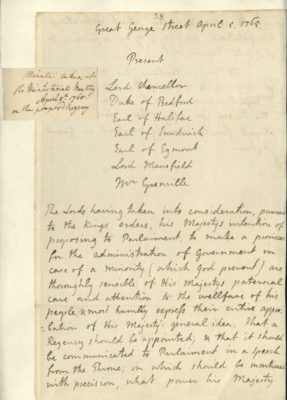 58
Great George Street April 5. 1765
Minute taken at
the Ministerial Meeting
April 5th 1765
on the proposed Regency
Present
Lord Chancellor
Duke of Bedford
Earl of Halifax
Earl of Sandwich
Earl of Egmont
Lord Mansfield
Mr Grenville
The Lords having taken into consideration, pursuant
to the Kings orders, his Majesty's intention of
proposing to Parliament to make a provision
for the administration of Government in
case of a Minority (which God prevent) are
thoroughly sensible of His Majestys paternal
care and attention to the wellfare of his
people & most humbly express their entire appro-
-bation of His Majesty's general idea, that a
Regency should be appointed, & that it should
be communicated to Parliament in a speech
from the Throne; in which should be mentioned
with precision, what power his Majesty